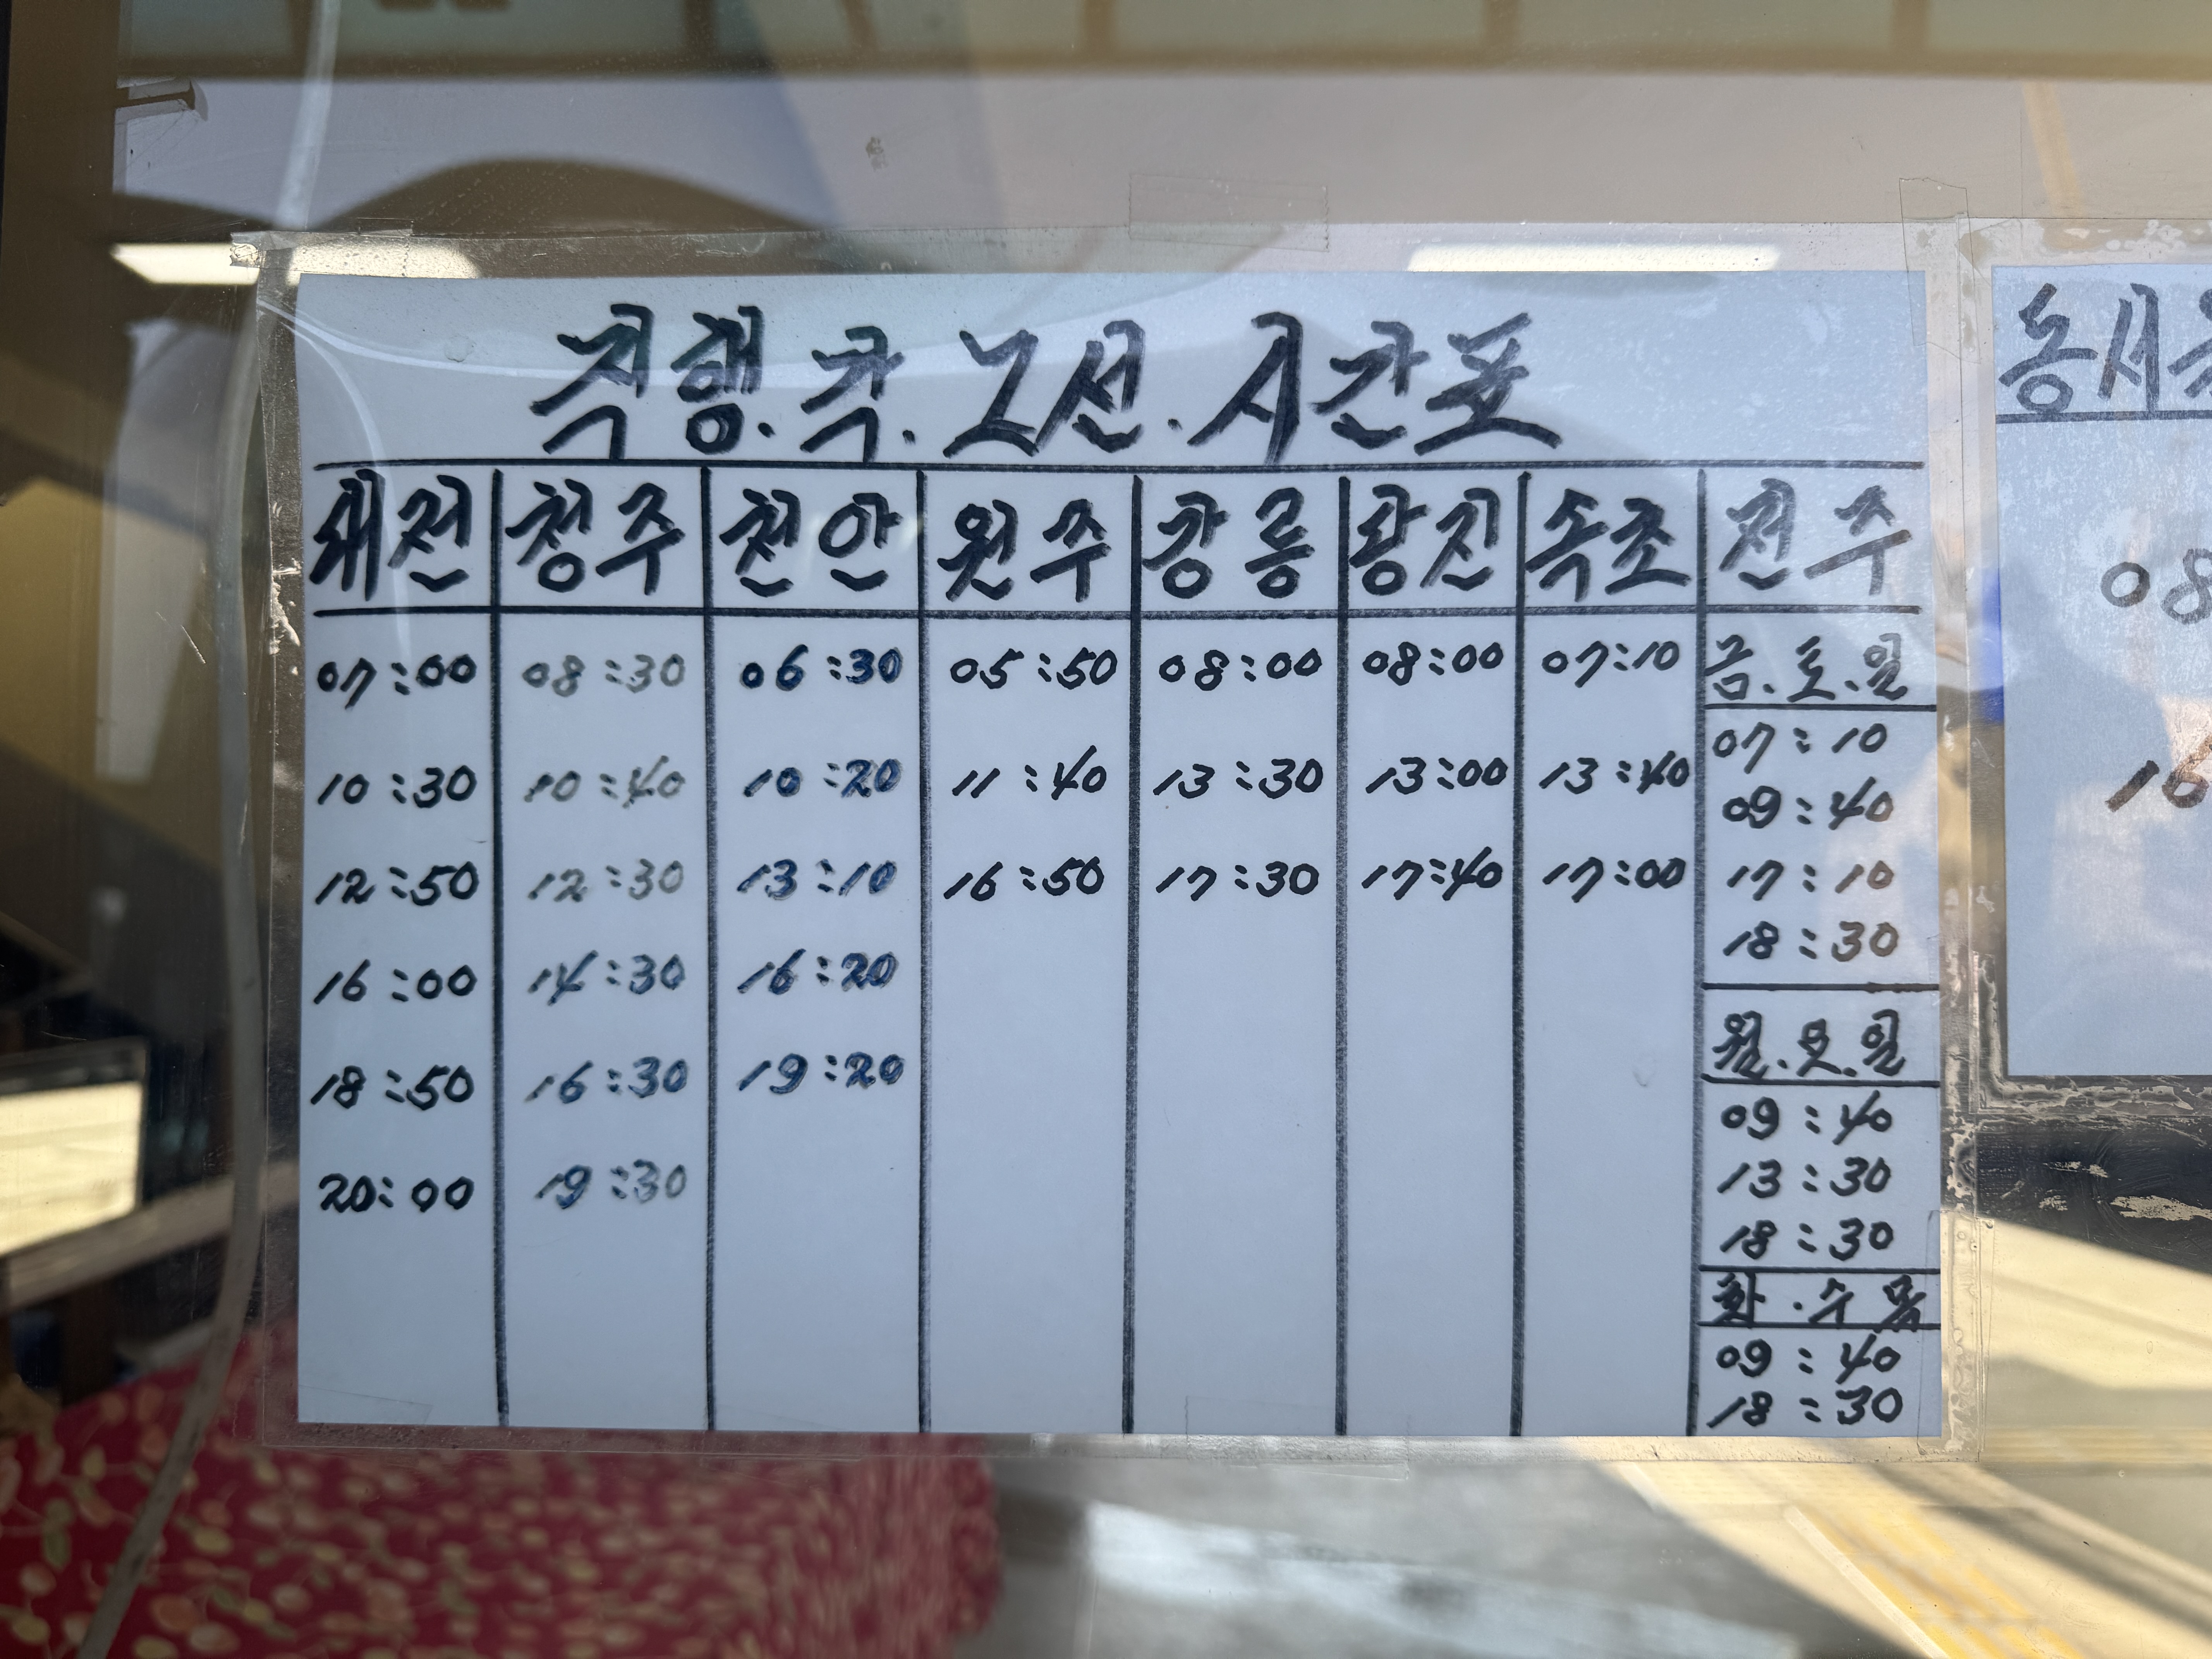 직행.각.노선.시간표
대전 청주 천안 원주 강릉 속초 전주
07:00 08:30 06:30 05:50 08:00 08:00 07:10 금.토.일
07:10
10:30 10:40 10:20 11:40 13:30 13:00 13:40
09:40
12:50 12:30 13:10 16:50 17:30 17:40 17:00 17:10
18:30
16:00 14:30 16:20
월.요.일
18:50 16:30 19:20
09:40
20:00 19:30 13:30
18:30
화.수 목
09:40
18:30
동서
08
16